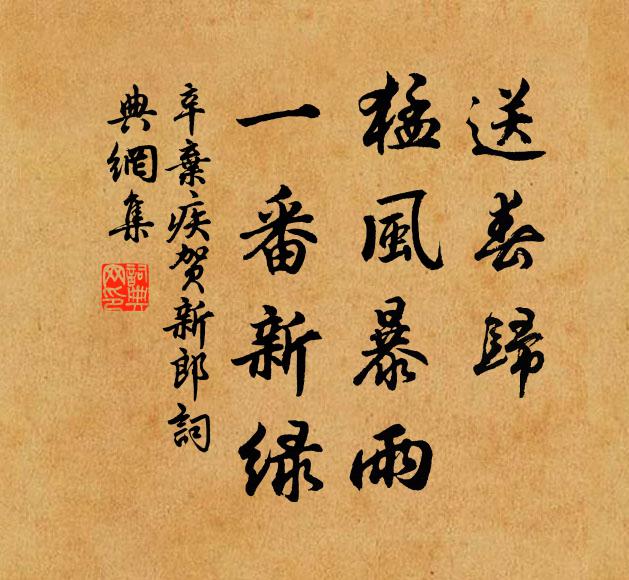 送春歸
猛風暴雨
一番新緑
辛棄疾賀新郎詞
典網集
詞典
网印